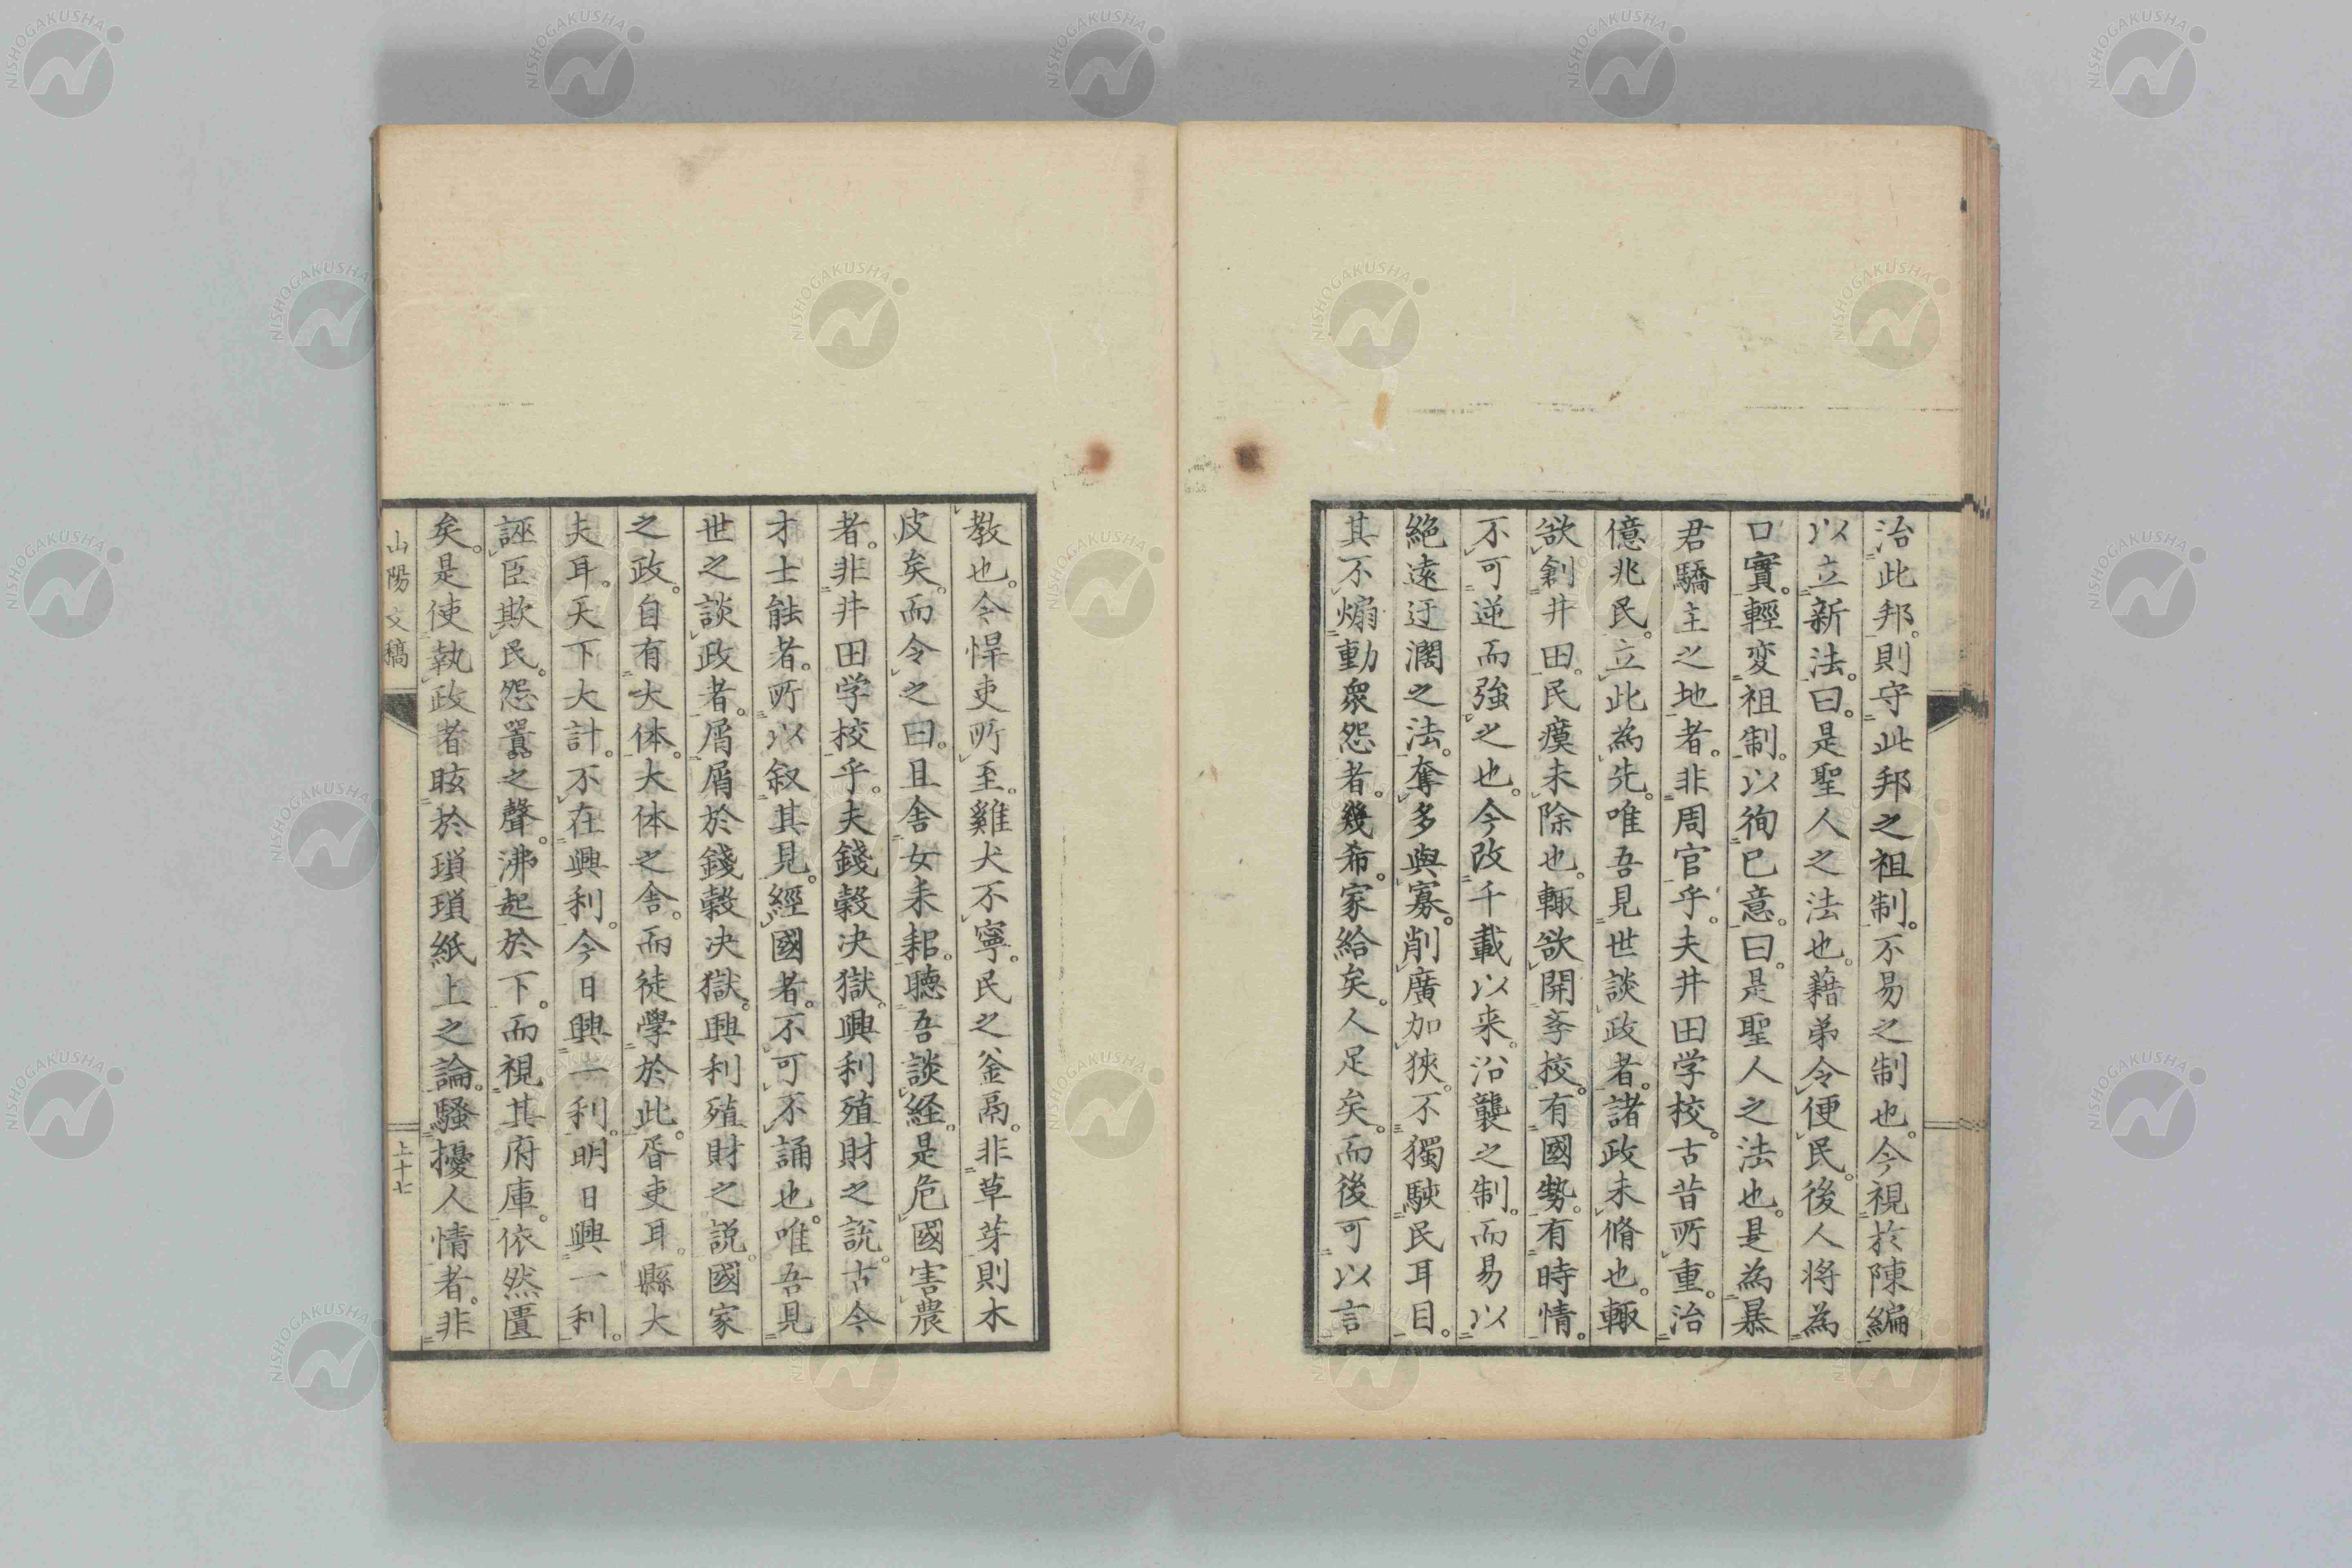 治此邦。則守此邦之祖制。不易之制也。今視於陳編
以立新法。曰。是聖人之法也。藉弟令便民。後人将為
口實。輕変祖制。以徇已意。曰。是聖人之法也。是為暴
君驕主之地者。非周官乎。夫井田学校。古昔所重。治
億兆民。立此為先。唯吾見世談政者。諸政未脩也。輒
欲創井田。民瘼未除也。輒欲開斈校。有國勢。有時情。
不可逆而強之也。今改千載以来。沿襲之制。而易以
絕遠迂濶之法。奪多與寡。削廣加狹。不獨駭民耳目。
其不煽動衆怨者。幾希。家給矣。人足矣。而後可以言
教也。今悍吏所至。雞犬不寧。民之釜鬲。非草芽則木
皮矣。而令之曰。且舍女耒耜。聴吾談経。是危國害農
者。非井田学校乎。夫錢穀决獄。興利殖財之説。古今
才士能者。所以叙其見。經國者。不可不誦也。唯吾見
世之談政者。屑屑於錢穀决獄。興利殖財之説。國家
之政。自有大体。大体之舎。而徒學於此。胥吏耳。縣大
夫耳。天下大計。不在興利。今日興一利。明日興一利。
誣臣欺民。怨嚣之聲。沸起於下。而視其府庫。依然匱
矣。是使執政者眩於瑣瑣紙上之論。騷擾人情者。非
山陽文稿
上十七
NISHOGAKUSHA